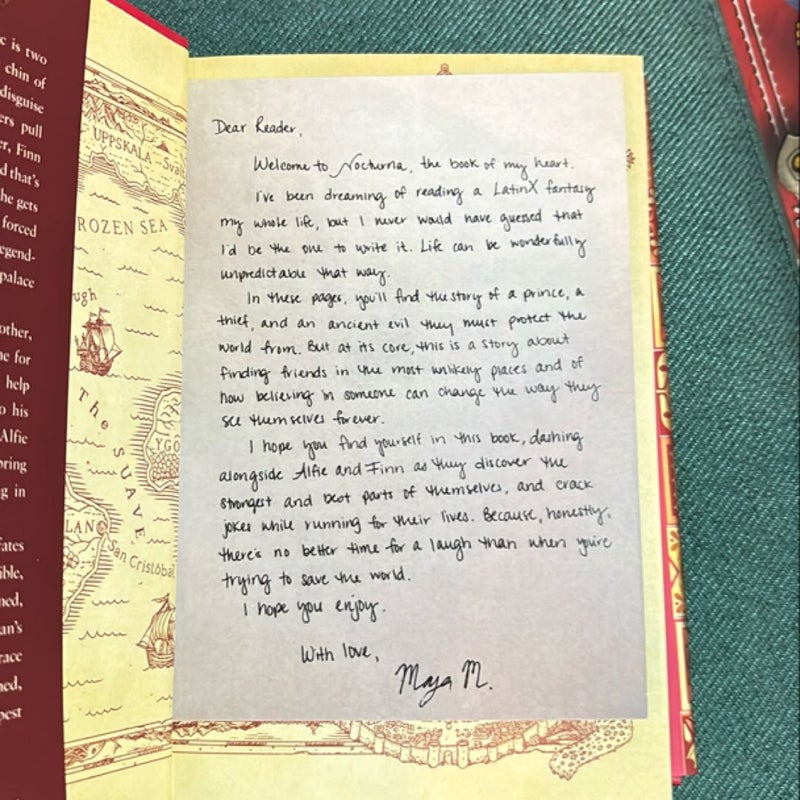 c is two
chin of
disguise
ers pull
r, Finn
d that's
he gets
forced
egend-
palace
other,
ne for
help
o his
Alfie
bring
g in
fates
ible,
ned,
an's
race
ned,
pest
UPPSKALA
ROZEN SEA
ugh
The SUAVE
YGO
LAN
San Cristóbal
Dear Reader,
Welcome to Nocturna, the book of my heart.
I've been dreaming of reading a LatinX fantasy
my whole life, but I never would have guessed that
I'd be the one to write it. Life can be wonderfully
unpredictable that way.
In these pages, you'll find the story of a prince, a
thief, and an ancient evil they must protect the
world from. But at its core, this is a story about
finding friends in the most unlikely places and of
how believing in someone can change the way they
see themselves forever.
I hope you find yourself in this book, dashing
alongside Alfie and Finn as they discover the
strongest and best parts of themselves, and crack
jokes while running for their lives. Because, honestly,
there's no better time for a laugh than when you're
trying to save the world.
I hope you enjoy.
With love,
Maya M.